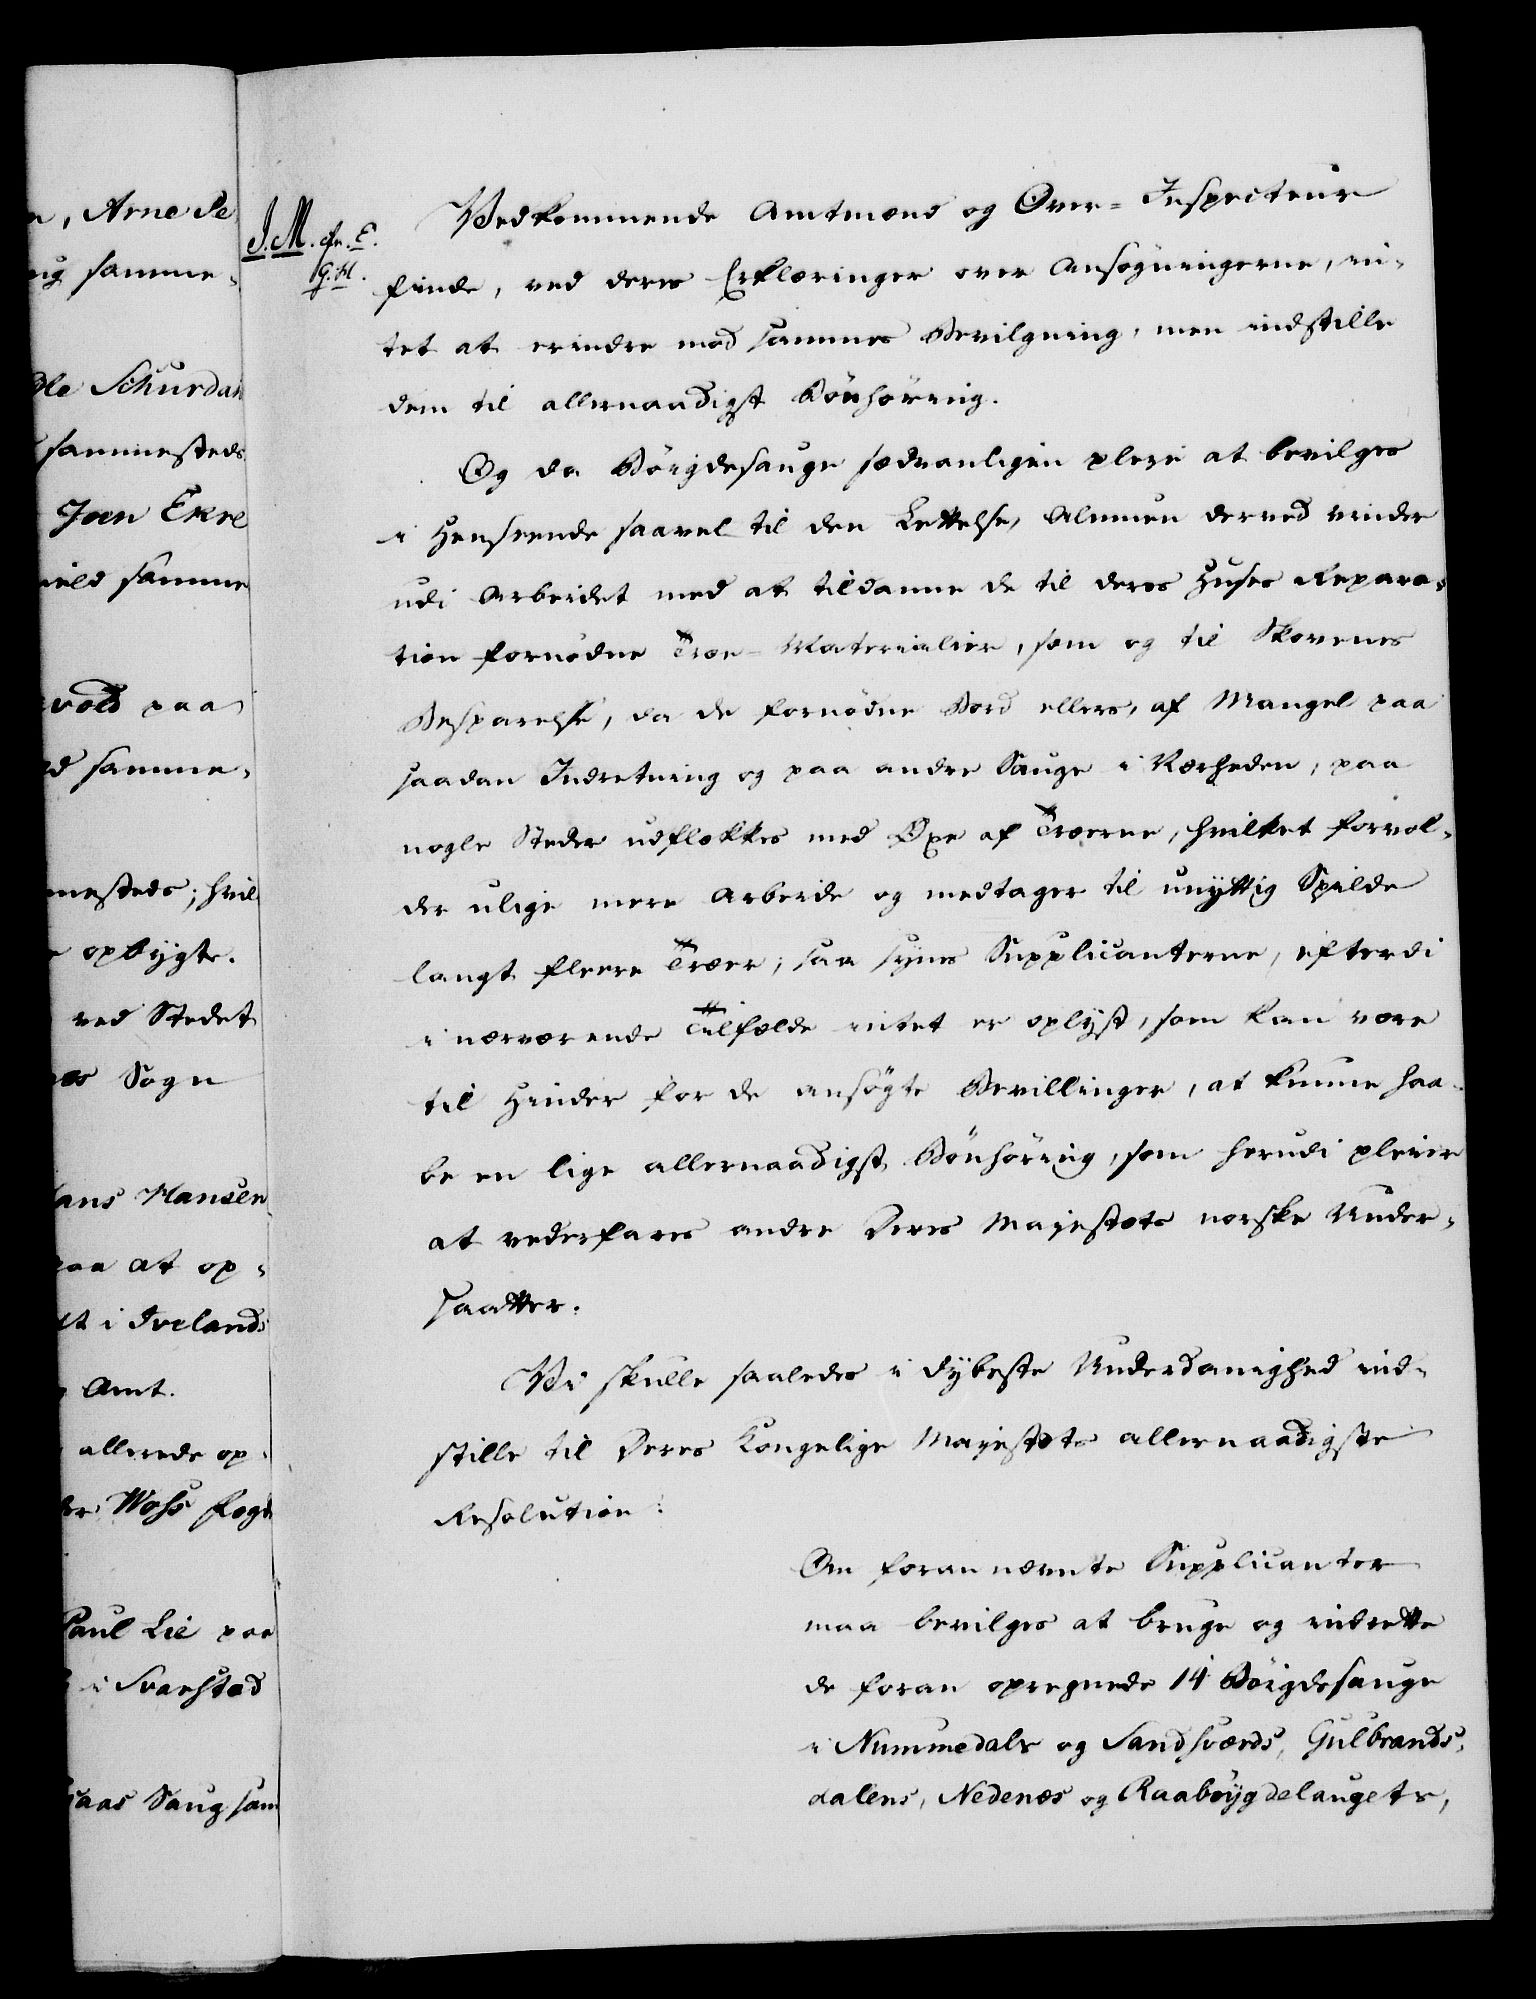 n, Arne Pe
ug samme-
Ole Schurdah
sammesteds
Joen Ekre
ield samme
vold paa
ed samme-
mesteds; hvil
opbygte.
ved Stedet
Sogn
Hans Hansen
paa at op-
et i Ivelands
Amt.
allerede op-
der Woss fogd
Paul Lie paa
i Svarstad
Saug sam
J. M. cfr. E.
G. H.
Vedkommende Amtmænd og Over-Inspecteur
finde, ved deres Erklæringer over Ansøgningerne, in-
tet at erindre mod sammes Bevilgning, men indstille
dem til allernaadigst Bönhöring.
Og da Böigdesauge sædvanligen pleie at bevilges
i Henseende saavel til den Lettelse, Almuen derved vinder
udi Arbeidet med at tildanne de til deres Huses Repara-
tion fornödne Træ-Materialier, som og til Skovenes
Besparelse, da de fornödne Bord ellers, af Mangel paa
saadan Indretning og paa andre Sauge i Nærheden, paa
nogle Steder udflækkes med Øxe af Træerne, hvilket forvol-
der ulige mere Arbeide og medtager til unyttig Spilde
langt fleere Træer; saa synes Supplicanterne, efterdi
i nærværende Tilfælde intet er oplyst, som kan være
til Hinder for de ansøgte Bevillinger, at kunne haa-
be en lige allernaadigst Bönhöring, som herudi pleier
at vederfares andre Deres Majestæts norske Under-
saatter.
Vi skulle saaledes i dybeste Underdanighed ind-
stille til Deres Kongelige Majestæts allernaadigste
Resolution:
Om forannævnte Supplicanter
maa bevilges at bruge og indrette
de foran opregnede 14 Böigdesauge
i Nummedals og Sandsværds, Gulbrands-
dalens, Nedenæs og Raabøygdelaugets,